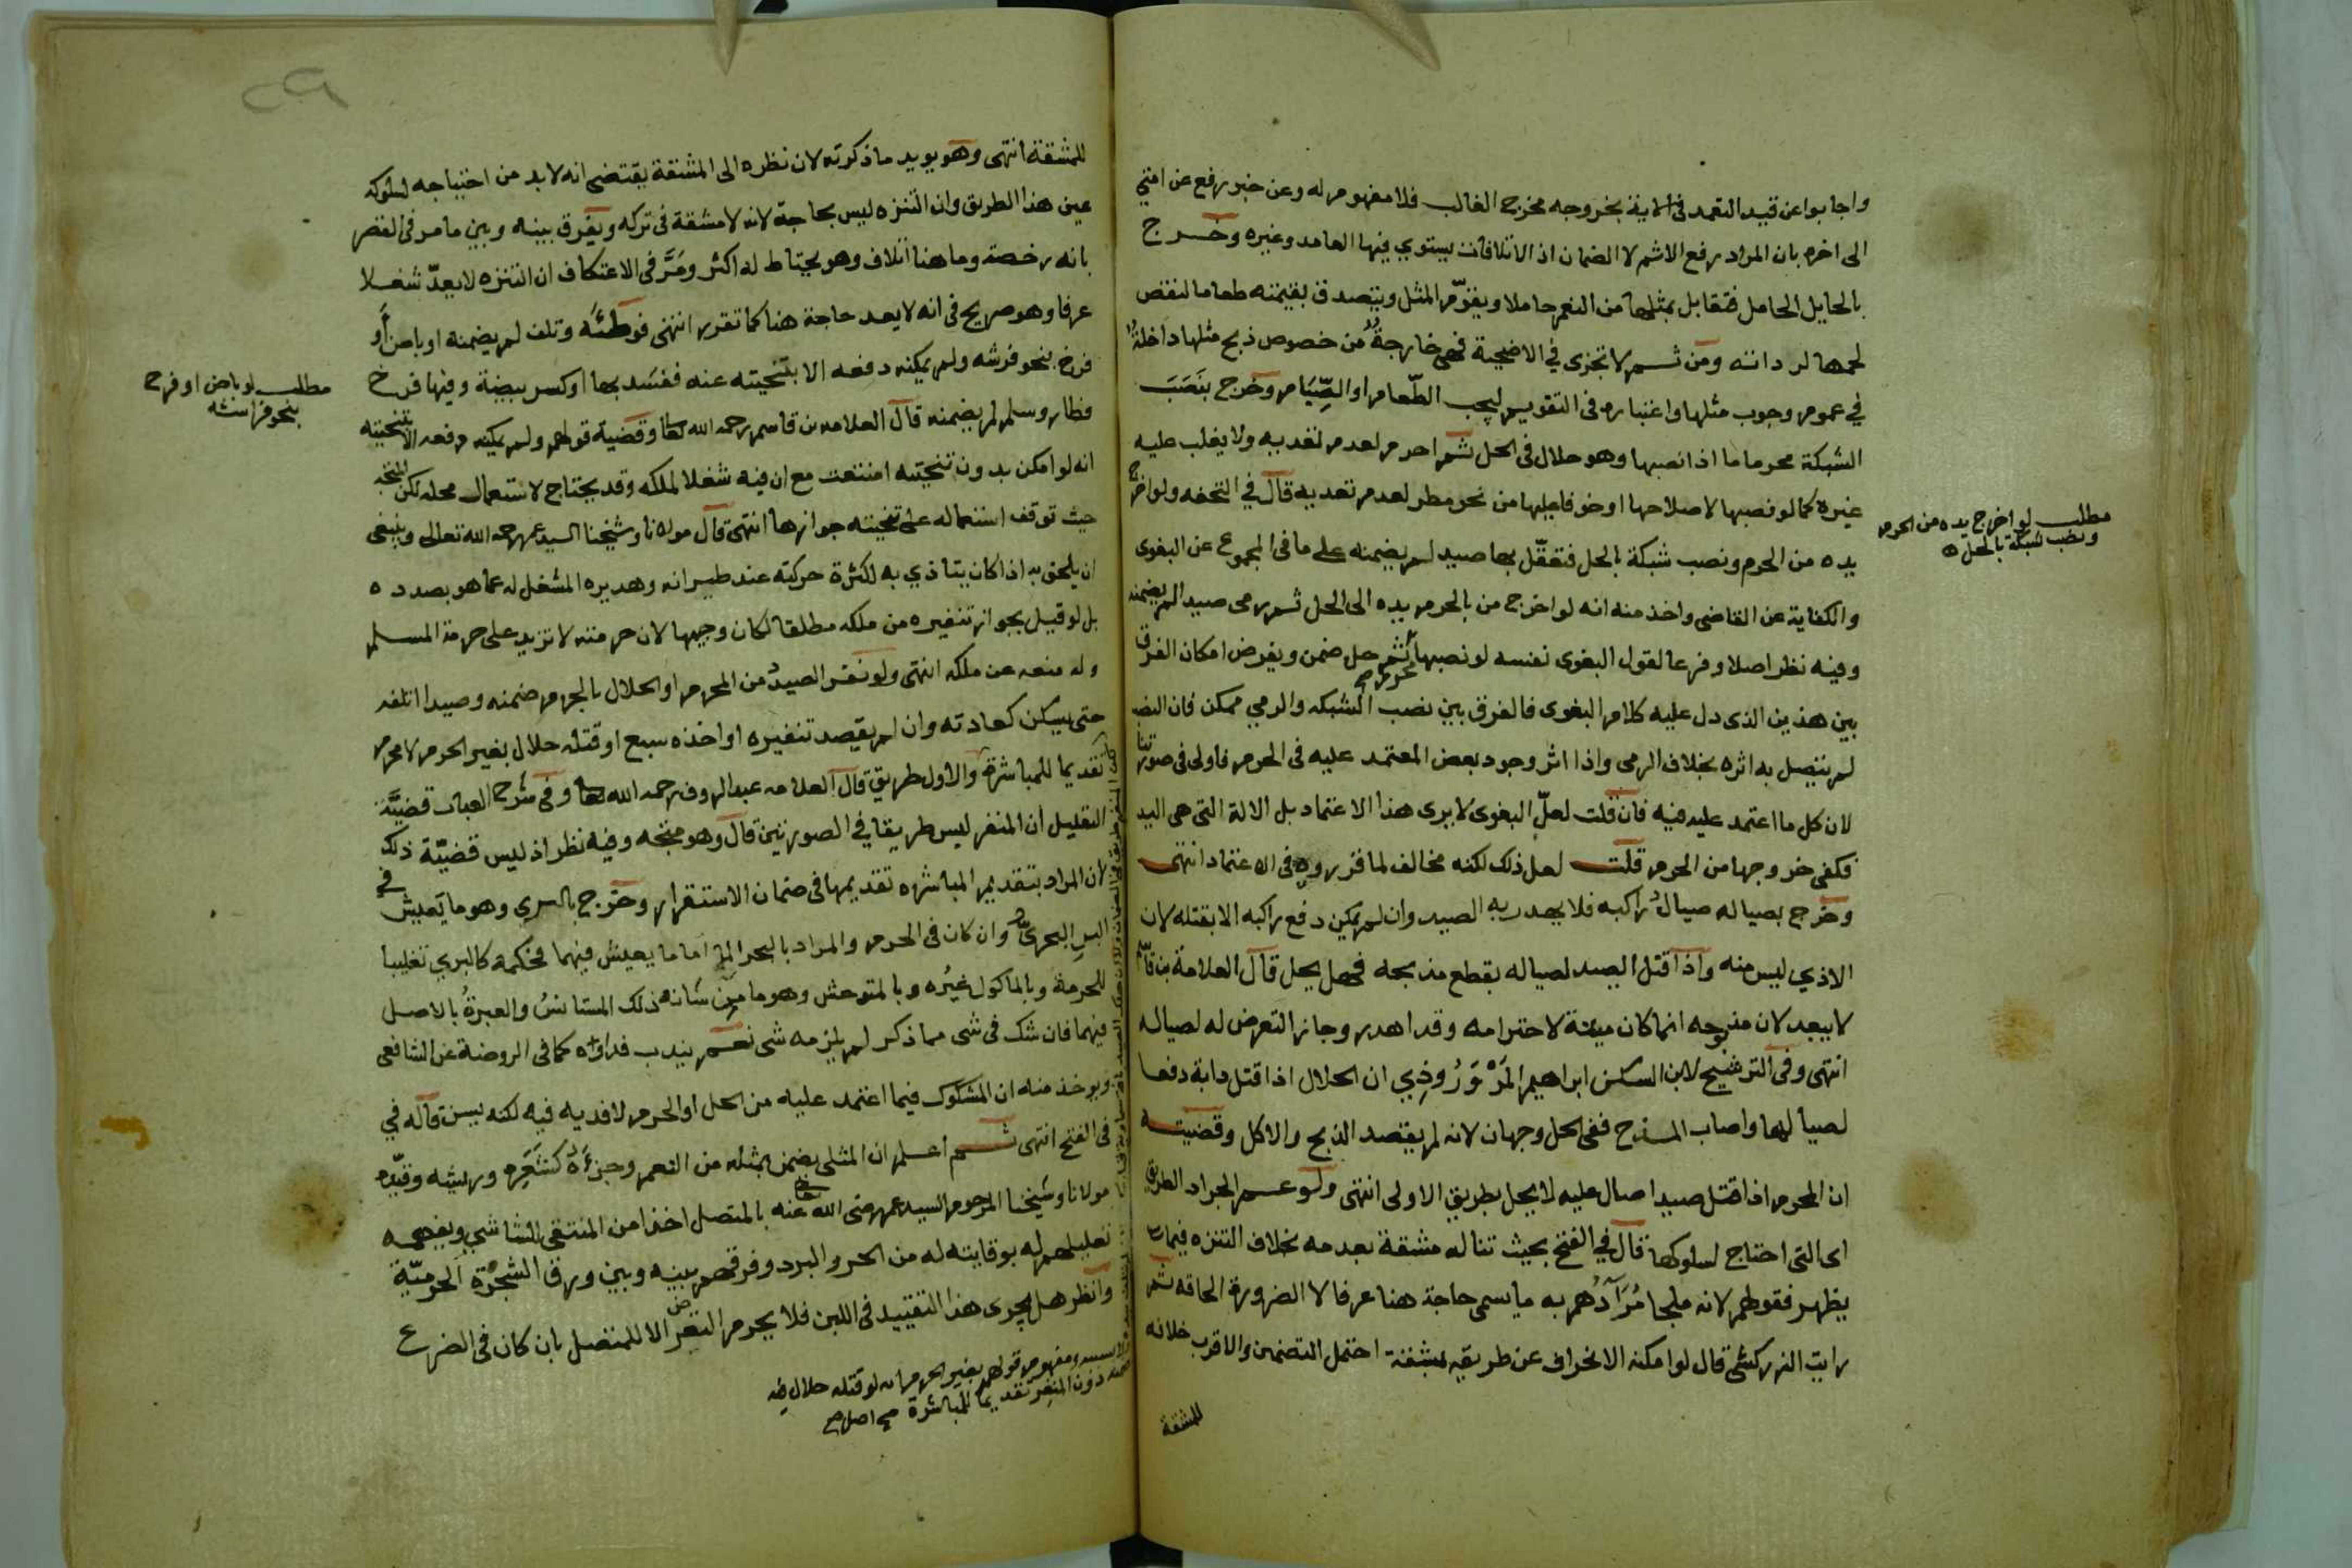 واجابوا عن قيد التعمد في الاية بخروجه مخرج الغالب فلا مفهوم له وعن خبر رفع عن امتي
الى اخره بان المراد رفع الاثم لا الضمان اذ الاتلافات يستوي فيها العامد وغيره وخرج
بالحايل الحامل فتقابل بمثلها من النعم حاملا ويقوّم المثل ويتصدق بقيمته طعاما لنقص
لحمها لرداته ومن ثم لا تجزى في الاضحية فهي خارجةٌ من خصوص ذبح مثلها داخلةٌ
في عموم وجوب مثلها واعتباره في التقويم ليجب الطّعام او الصِّيَام وخرج بنَصَبَ
الشبكة محرما ما اذا نصبها وهو حلال في الحل ثم احرم لعدم تعديه ولا يغلب عليه
غيره كما لو نصبها لاصلاحها او خوفا عليها من نحو مطر لعدم تعديه قال في التحفه ولو اخرج
يده من الحرم ونصب شبكة بالحل فتعقّل بها صيد لم يضمنه على ما في المجموع عن البغوى
والكفاية عن القاضي واخذ منه انه لو اخرج من بالحرم يده الى الحل ثم رمى صيدا لم يضمنه
وفيه نظر اصلا وفرعا لقول البغوى نفسه لو نصبها محرم ثم حل ضمن وبفرض امكان الفرق
بين هذين الذى دل عليه كلام البغوى فالفرق بين نصب الشبكه والرمي ممكن فان النصب
لم يتصل به اثره بخلاف الرمى واذا اثر وجود بعض المعتمد عليه في الحرم فاولى في صورتنا
لان كل ما اعتمد عليه فيه فان قلت لعلّ البغوى لا يرى هذا الاعتماد بل الالة التى هى اليد
فكفى خروجها من الحرم قلت لعل ذلك لكنه مخالف لما قرروه فى الاعتماد انتهى
وخرج بصياله صيالُ راكبه فلا يهدر به الصيد وان لم يمكن دفع راكبه الا بقتله لان
الاذي ليس منه واذا قتل الصيد لصياله بقطع مذبحه فهل يحل قال العلامة بن قاسم
لا يبعد لان مذبوحه انما كان ميتة لاحترامه وقد اهدر وجاز التعرض له لصياله
انتهى وفى الترشيح لابن السكن ابراهيم المَرْوَرُوذِي ان الحلال اذا قتل دابة دفعا
لصيالها واصاب المذبح ففى الحل وجهان لانه لم يقصد الذبح والاكل وقضيته
ان المحرم اذا قتل صيدا صال عليه لا يحل بطريق الاولى انتهى ولو عم الجراد الطريق
اى التى احتاج لسلوكها قال في الفتح بحيث تناله مشقة بعدمه بخلاف التنزه فيما
يظهر فقولهم لانه ملجا مُرَادُهم به ما يسمى حاجة هنا عرفا لا الضرورة الحاقه ثم
رايت الزركشي قال لو امكنه الانحراف عن طريقه بمشقة احتمل التضمين والاقرب خلافه
للمشقة
مطلب لو اخرج يده من الحرم
ونصب شبكة بالحل
للمشقة انتهى وهو يويد ما ذكرته لان نظره الى المشقة يقتضى انه لا بد من احتياجه لسلوكه
عين هذا الطريق وان التنزه ليس بحاجة لانه لا مشقة في تركه ويفرق بينه وبين ما مر في القصر
بانه رخصة وما هنا اتلاف وهو يحتاط له اكثر ومَرَّ في الاعتكاف ان التنزه لا يعدّ شغلا
عرفا وهو صريح في انه لا يعد حاجة هنا كما تقرر انتهى فوطئه وتلف لم يضمنه او باض أو
فرخ بنحو فرشه ولم يمكنه دفعه الا بتنحيته عنه ففسد بها او كسر بيضة وفيها فرخ
فطار وسلم لم يضمنه قال العلامه بن قاسم رحمه الله تعالى وقضية قولهم ولم يمكنه دفعه الا بتنحيته
انه لو امكن بدون تنحيته امتنعت مع ان فيه شغلا لملكه وقد يحتاج لاستعمال محله لكن المتجه
حيث توقف استعماله على تنحيته جوازها انتهى قال مولانا وشيخنا السيد عمر رحمه الله تعالى وينبغى
ان يلحق به اذا كان يتاذي به لكثرة حركته عند طيرانه وهديره المشغل له عما هو بصدده
بل لو قيل بجواز تنفيره من ملكه مطلقا لكان وجيها لان حرمته لا تزيد على حرمة المسلم
وله منعه عن ملكه انتهى ولو نفر الصيدُ من المحرم او الحلال بالحرم ضمنه وصيدا اتلفه
حتى يسكن كعادته وان لم يقصد تنفيره او اخذه سبع او قتله حلال بغير الحرم لا محرم
تقديما للمباشرة والاول طريق قال العلامه عبد الروف رحمه الله تعالى وفى شرح العباب قضيّة
التعليل ان المنفر ليس طريقا في الصورتين قال وهو متجه وفيه نظر اذ ليس قضيّة ذلك
لان المراد بتقديم المباشره تقديمها فى ضمان الاستقرار وخرج بالبري وهو ما يعيش في
البر البحريُّ وان كان فى الحرم والمراد بالبحر الماء اما ما يعيش فيهما فحكمه كالبري تغليبا
للحرمة وبالماكول غيُره وبالمتوحش وهو ما مِن شانه ذلك المستانسُ والعبرةُ بالاصل
فيهما فان شك فى شى مما ذكر لم يلزمه شى نعم يندب فداؤه كما فى الروضة عن الشافعى
ويوخذ منه ان المشكوك فيما اعتمد عليه من الحل او الحرم لا فديه فيه لكنه يسن قاله في
فى الفتح انتهى ثم اعلم ان المثلى يضمن بمثله من النعم وجزءَهُ كشَعَرِه وريشه وقيّده
مولانا وشيخنا المرحوم السيد عمر رضى الله تعالى عنه بالمتصل اخذا من المنتقى للشاشي ويفهمه
تعليلهم له بوقايته له من الحر والبرد وفرقهم بينه وبين ورق الشجرة الحرميّة
وانظر هل يجرى هذا التقييد فى اللبن فلا يحرم التعرض الا للمتصل بان كان فى الضرع
ومفهوم قولهم بغير الحرم انه لو قتله حلال فيه
ضمنه دون المنفر تقديما للمباشرة صح اصل
مطلب لو باض او فرخ
بنحو فراشه